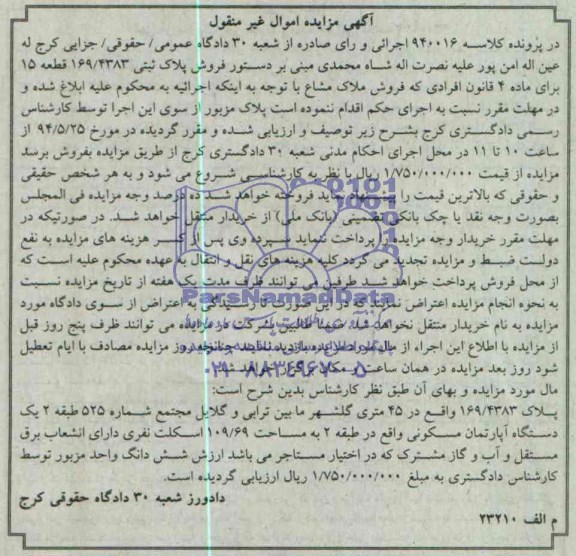 آگهی مزایده اموال غیر منقول
در پرونده کلاسه ۹۴۰۰۱۶ اجرائی و رای صادره از شعبه ۳۰ دادگاه عمومی/ حقوقی/ جزایی کرج له
عین اله امن پور علیه نصرت اله شاه محمدی مبنی بر دستور فروش پلاک ثبتی ۱۶۹/۴۳۸۳ قطعه ۱۵
برای ماده ۴ قانون افرادی که فروش ملاک مشاع با توجه به اینکه اجرائیه به محکوم علیه ابلاغ شده و
در مهلت مقرر نسبت به اجرای حکم اقدام ننموده است پلاک مزبور از سوی این اجرا توسط کارشناس
رسمی دادگستری کرج بشرح زیر توصیف و ارزیابی شده و مقرر گردیده در مورخ ۹۴/۵/۲۵ از
ساعت ۱۰ تا ۱۱ در محل اجرای احکام مدنی شعبه ۳۰ دادگستری کرج از طریق مزایده بفروش برسد
مزایده از قیمت ۱/۷۵۰/۰۰۰/۰۰۰ ریال با نظر به کارشناسی شروع می شود و به هر شخص حقیقی
و حقوقی که بالاترین قیمت را پیشنهاد نماید فروخته خواهد شد. ده درصد وجه مزایده فی المجلس
بصورت وجه نقد یا چک بانکی تضمینی (بانک ملی) از خریدار منتقل خواهد شد. در صورتیکه در
مهلت مقرر خریدار وجه مزایده را پرداخت ننماید سپرده وی پس از کسر هزینه های مزایده به نفع
دولت ضبط و مزایده تجدید می گردد کلیه هزینه های نقل و انتقال به عهده محکوم علیه است که
از محل فروش پرداخت خواهد شد. طرفین می توانند ظرف مدت یک هفته از تاریخ مزایده نسبت
به نحوه انجام مزایده اعتراض نمایند که در این صورت تا رسیدگی به اعتراض از سوی دادگاه مورد
مزایده به نام خریدار منتقل نخواهد شد. ضمنا طالبین شرکت در مزایده می توانند ظرف پنج روز قبل
از مزایده با اطلاع این اجراء از مال مورد مزایده بازدید نمایند چنانچه روز مزایده مصادف با ایام تعطیل
شود روز بعد مزایده در همان ساعت و مکان برگزار خواهد شد.
مال مورد مزایده و بهای آن طبق نظر کارشناس بدین شرح است:
پلاک ۱۶۹/۴۳۸۳ واقع در ۴۵ متری گلشهر ما بین ترابی و گلایل مجتمع شماره ۵۲۵ طبقه ۲ یک
دستگاه آپارتمان مسکونی واقع در طبقه ۲ به مساحت ۱۰۹/۶۹ اسکلت نفری دارای انشعاب برق
مستقل و آب و گاز مشترک که در اختیار مستاجر می باشد ارزش شش دانگ واحد مزبور توسط
کارشناس دادگستری به مبلغ ۱/۷۵۰/۰۰۰/۰۰۰ ریال ارزیابی گردیده است.
دادورز شعبه ۳۰ دادگاه حقوقی کرج
م الف ۲۳۲۱۰
ParsNamadData
۰۲۱-۸۸۳۴۹۶۷۰-۵